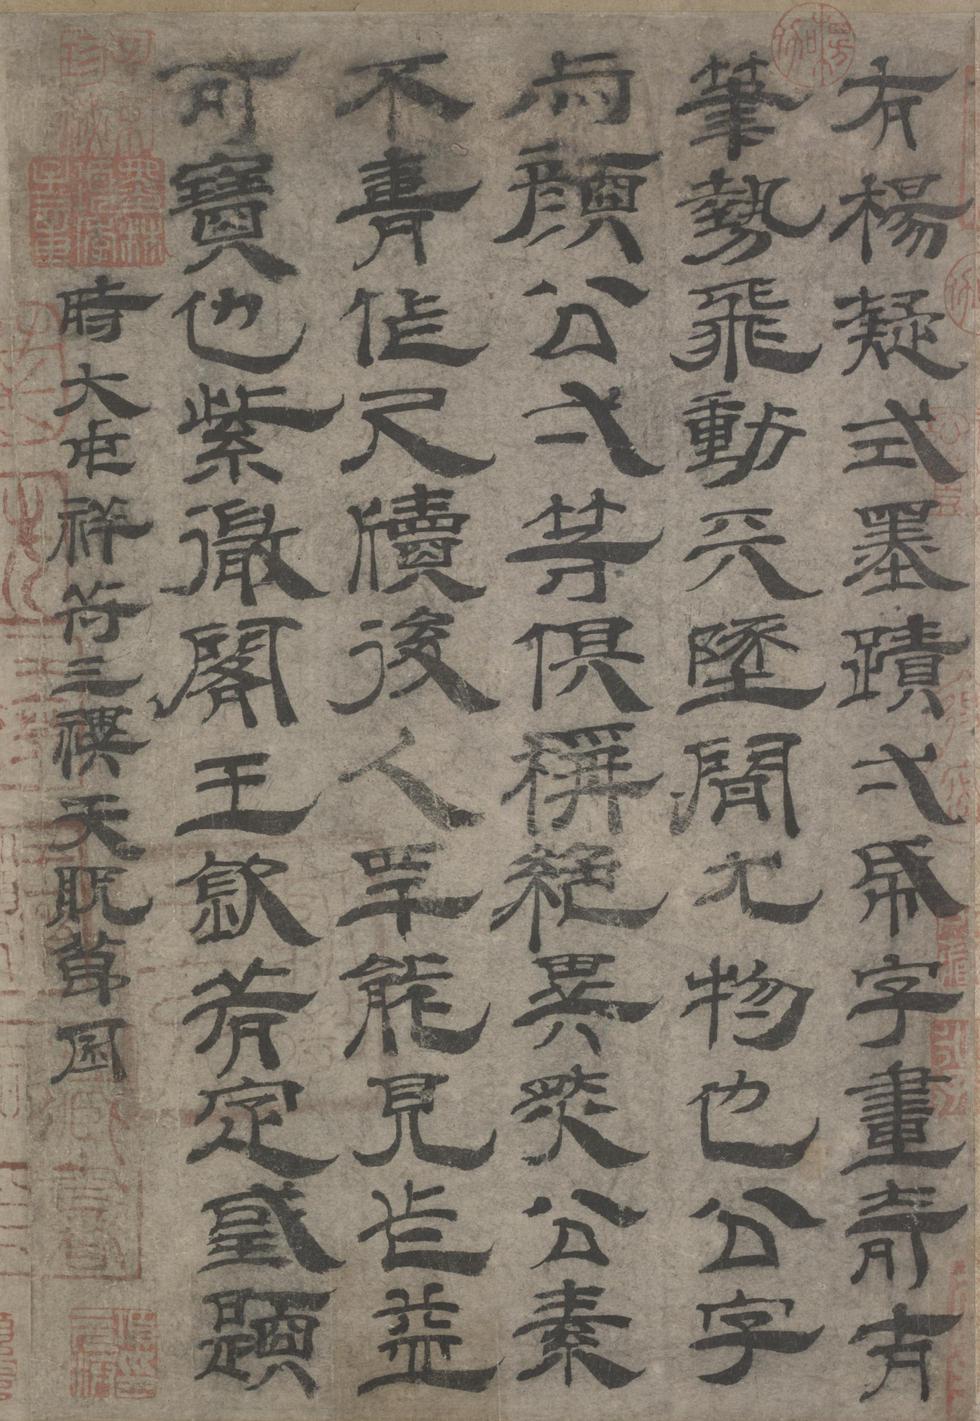 右楊凝式墨蹟弍帋字畫奇古
筆勢飛動天墬間尤物也公字
与顏公弍等俱稱絕異然公素
不喜作尺牘後人罕能見此益
可寶也紫微閣王欽若定國題
時大宋祥符三禩天貺節日